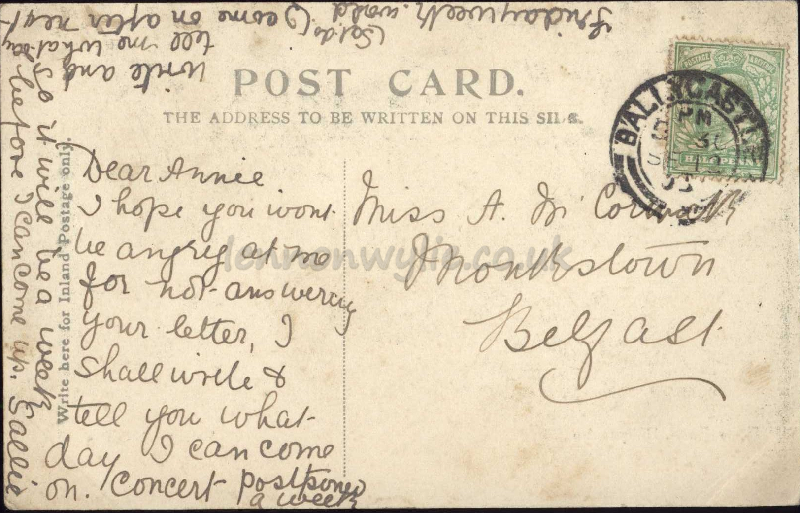 POST CARD.
THE ADDRESS TO BE WRITTEN ON THIS SIDE.
Write here for Inland Postage only.
Dear Annie
I hope you wont
be angry at me
for not answering
your letter, I
shall write &
tell you what
day I can come
on. Concert postponed
a week
so it will be a week
before I can come up. Sallie
write and
tell me what day
(Satdo) come on after next
Friday week. would
Miss A. Mc
Monkstown
Belfast
BALLYCASTLE
PM
HALFPENNY
lennonwylie.co.uk